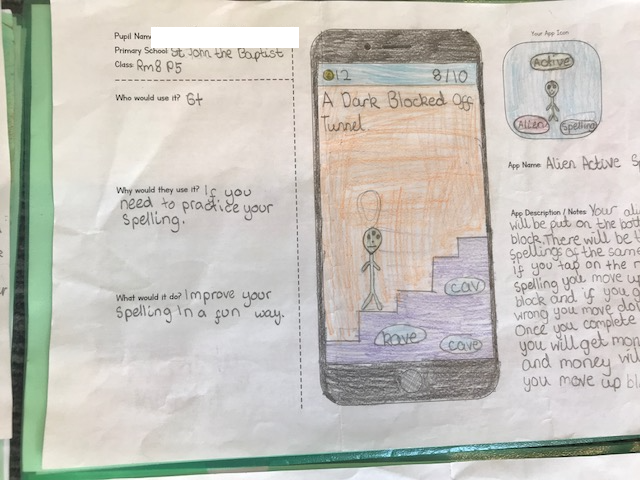 Pupil Name
Primary School St John the Baptist
Class: Rm8 P5
Who would use it? 6+
Why would they use it? If you
need to practice your
spelling.
What would it do? Improve your
spelling in a fun way.
12 8/10
A Dark Blocked Off
Tunnel.
cav
kave
cave
Your App Icon
Active
Alien Spelling
App Name: Alien Active
App Description / Notes Your
will be put on the
block. There will be
spellings of the same
if you tap on the
spelling you move up
block and if you
wrong you move
Once you complete
you will get
and money
you move up